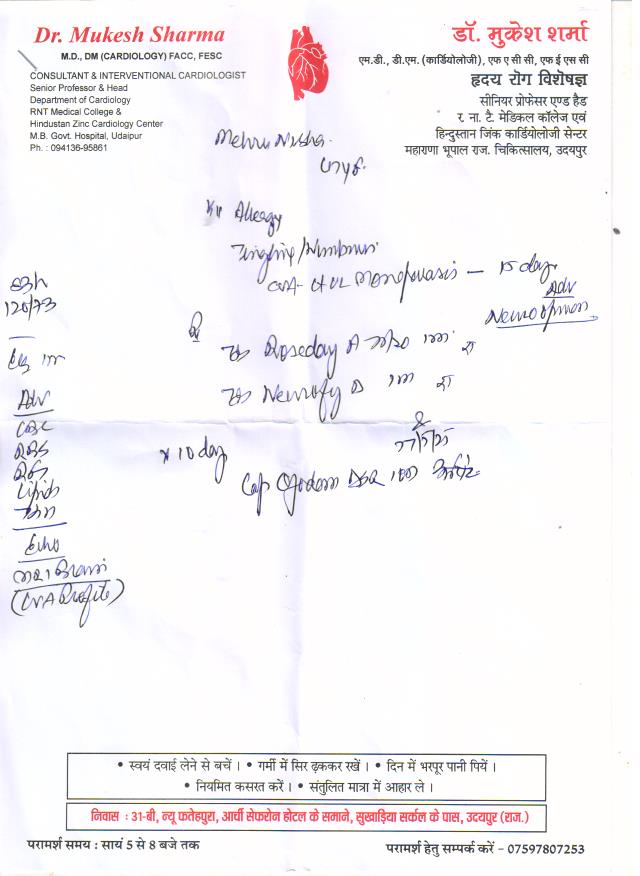 Dr. Mukesh Sharma
M.D., DM (CARDIOLOGY) FACC, FESC
CONSULTANT & INTERVENTIONAL CARDIOLOGIST
Senior Professor & Head
Department of Cardiology
RNT Medical College &
Hindustan Zinc Cardiology Center
M.B. Govt. Hospital, Udaipur
Ph. : 094136-95861
डॉ. मुकेश शर्मा
एम.डी., डी.एम. (कार्डियोलॉजी), एफ ए सी सी, एफ ई एस सी
हृदय रोग विशेषज्ञ
सीनियर प्रोफेसर एण्ड हैड
र. ना. टै. मेडिकल कॉलेज एवं
हिन्दुस्तान जिंक कार्डियोलॉजी सेन्टर
महाराणा भूपाल राज. चिकित्सालय, उदयपुर
Mehru Nisha
Allergy
Tingling/Numbness
CVA- Monoparasis - 15 day
Adv
Neuro opinion
120/73
Adv
CBC
RBS
Lipids
Echo
MRI Brain
(CVA Profile)
Roseday A
Neurofy D
x 10 day
Cap
• स्वयं दवाई लेने से बचें । • गर्मी में सिर ढ़ककर रखें । • दिन में भरपूर पानी पियें ।
• नियमित कसरत करें । • संतुलित मात्रा में आहार ले ।
निवास : 31-बी, न्यू फतेहपुरा, आर्ची सेफरोन होटल के समाने, सुखाड़िया सर्कल के पास, उदयपुर (राज.)
परामर्श समय : सायं 5 से 8 बजे तक
परामर्श हेतु सम्पर्क करें - 07597807253